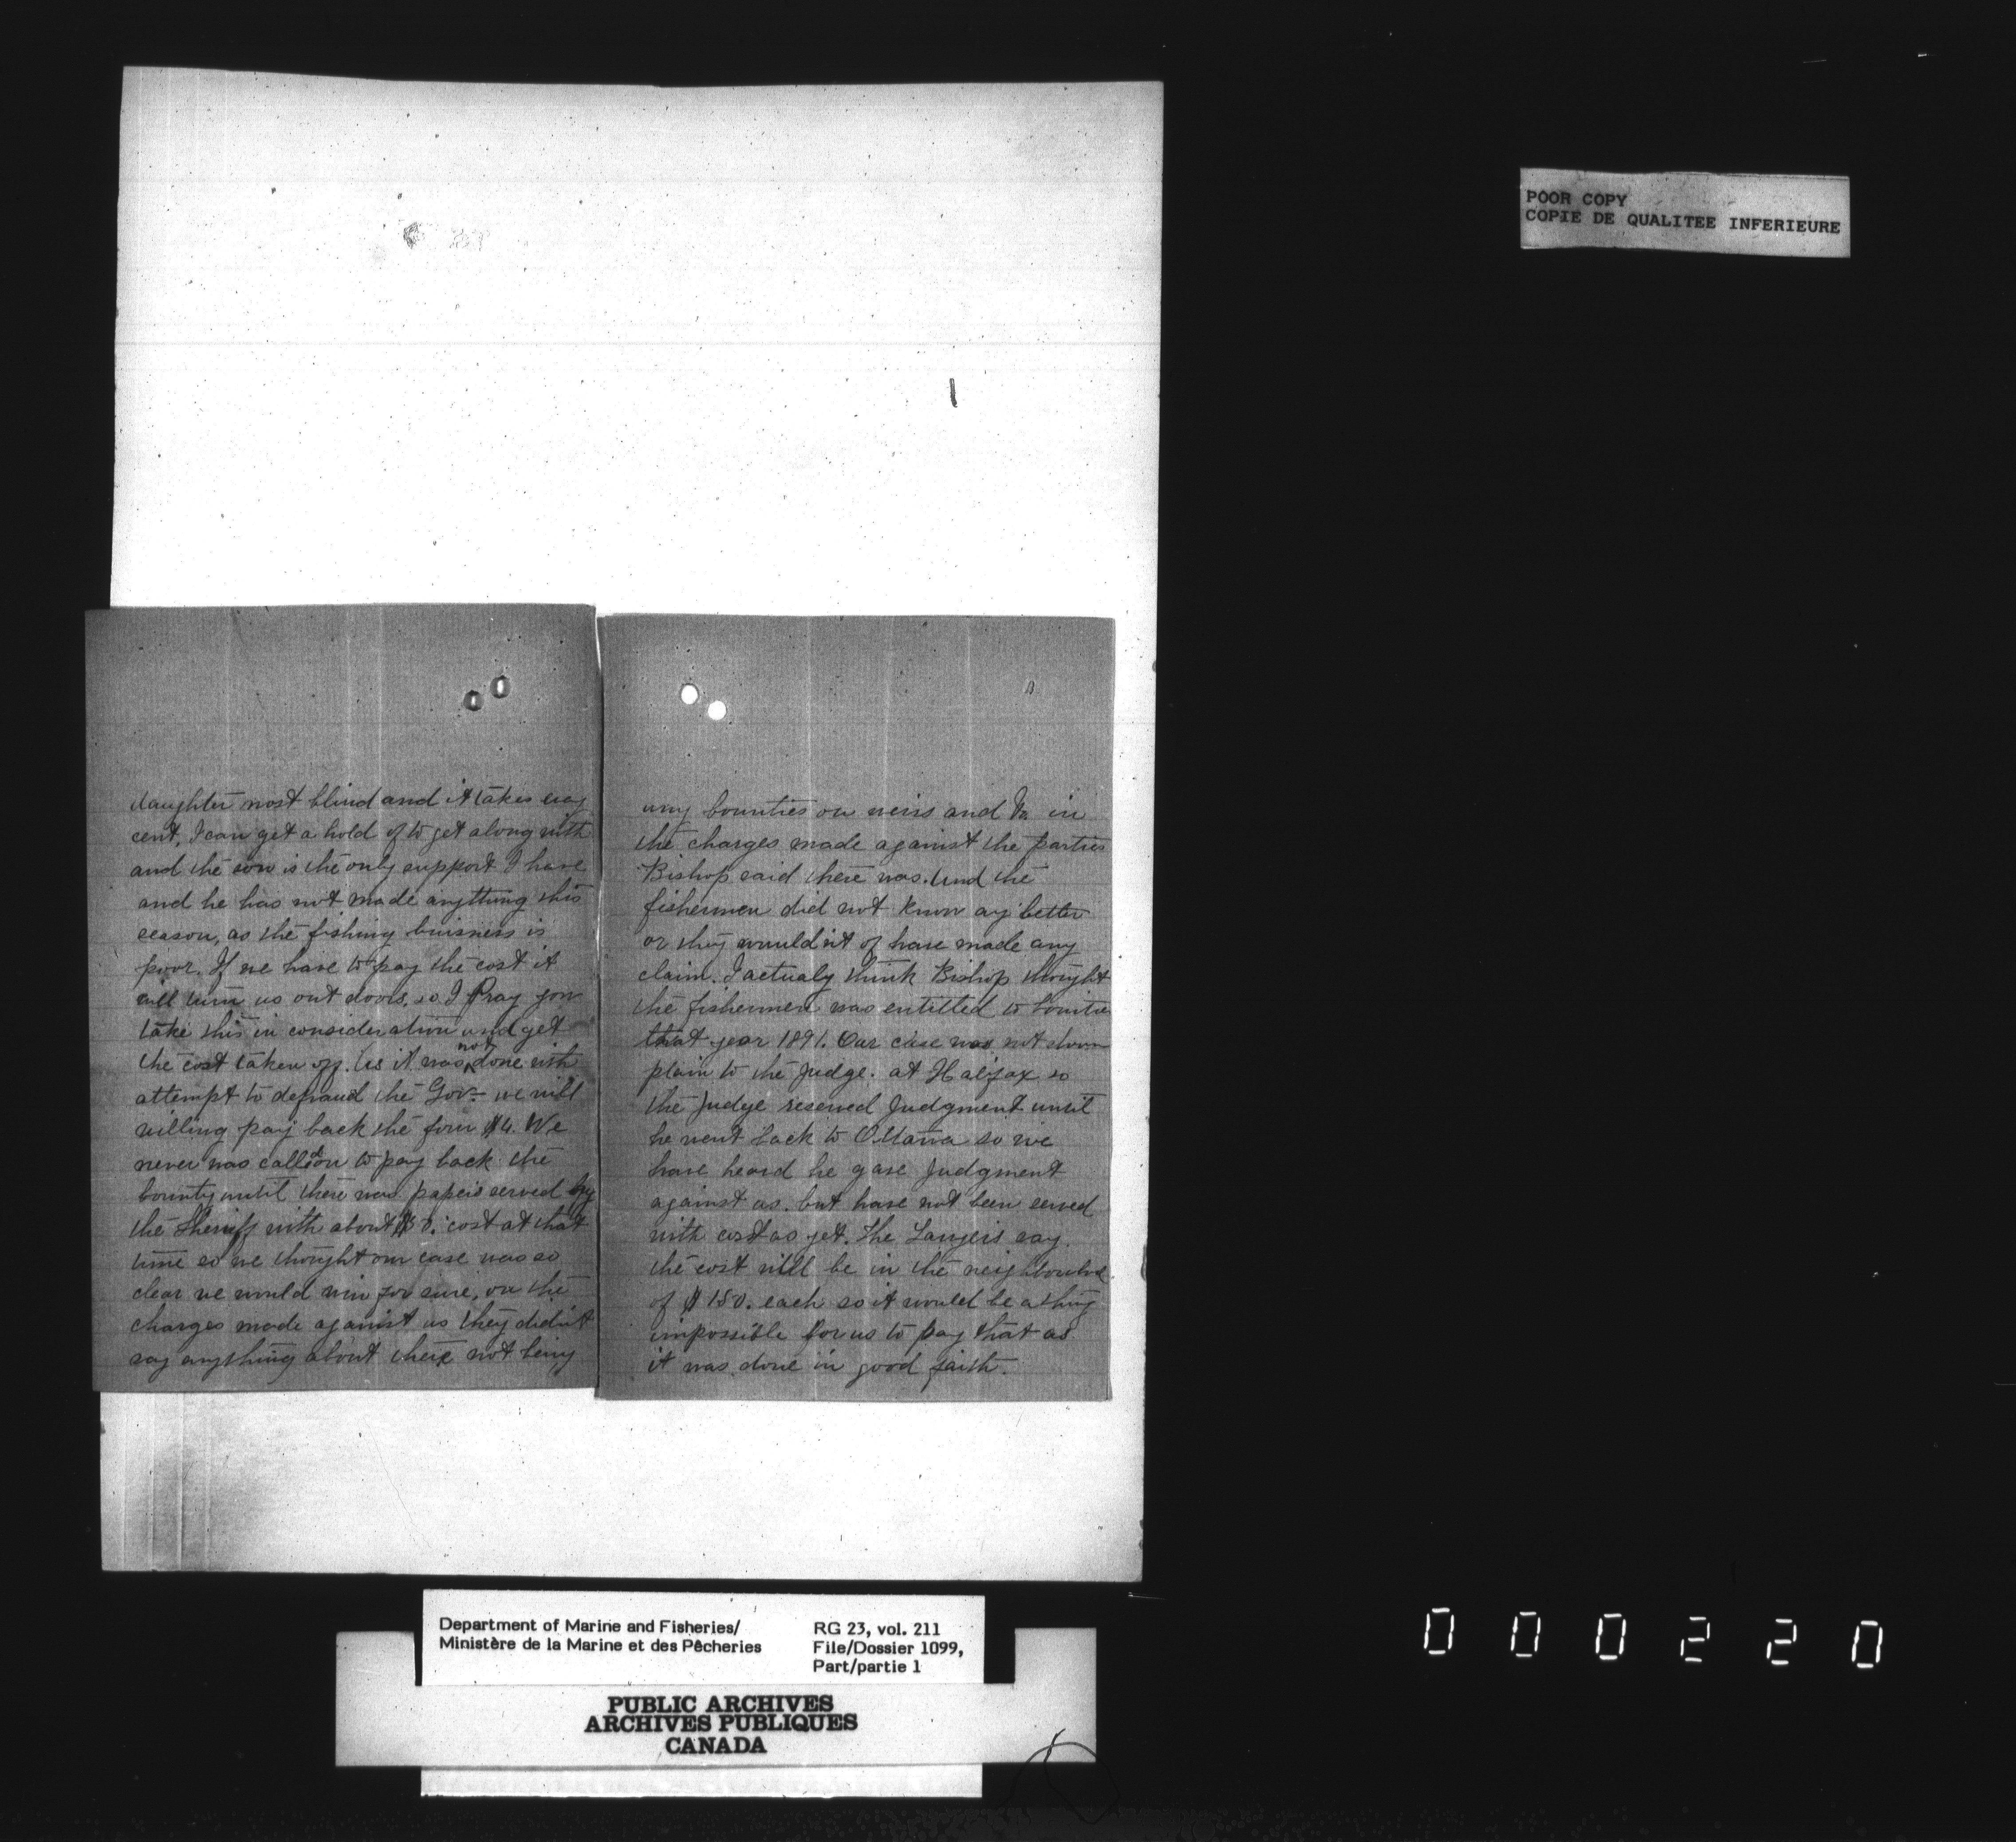 POOR COPY
COPIE DE QUALITEE INFERIEURE
daughter most blind and it takes evry
cent, I can get a hold of to get along with
and the son is the only support I have
and he has not made anything this
season, as the fishing buisness is
poor. If we have to pay the cost it
will turn us out doors, so I Pray you
take this in consideration and get
the cost taken off. As it was not done with
attempt to defraud the Gov- we will
willing pay back the four $4. We
never was called on to pay back the
bounty until there was papers served by
the Sheriff with about cost at that
time so we thought our case was so
clear we would win for sure, on the
charges made against us they didn't
say anything about there not being
any bounties on weirs and in
the charges made against the parties
Bishop said there was. And the
fishermen did not know any better
or they would nt of have made any
claim. I actualy think Bishop thought
the fishermen was entitled to
that year 1891. Our case was not shown
plain to the Judge. at Halifax so
the Judge reserved Judgment until
he went back to Ottawa so we
have heard he gave Judgment
against us. but have not been served
with cost as yet. The Lawyers say
the cost will be in the
of $150. each so it would be a thing
impossible for us to pay that as
it was done in good faith.
Department of Marine and Fisheries/
Ministère de la Marine et des Pêcheries
RG 23, vol. 211
File/Dossier 1099,
Part/partie 1
PUBLIC ARCHIVES
ARCHIVES PUBLIQUES
CANADA
000220